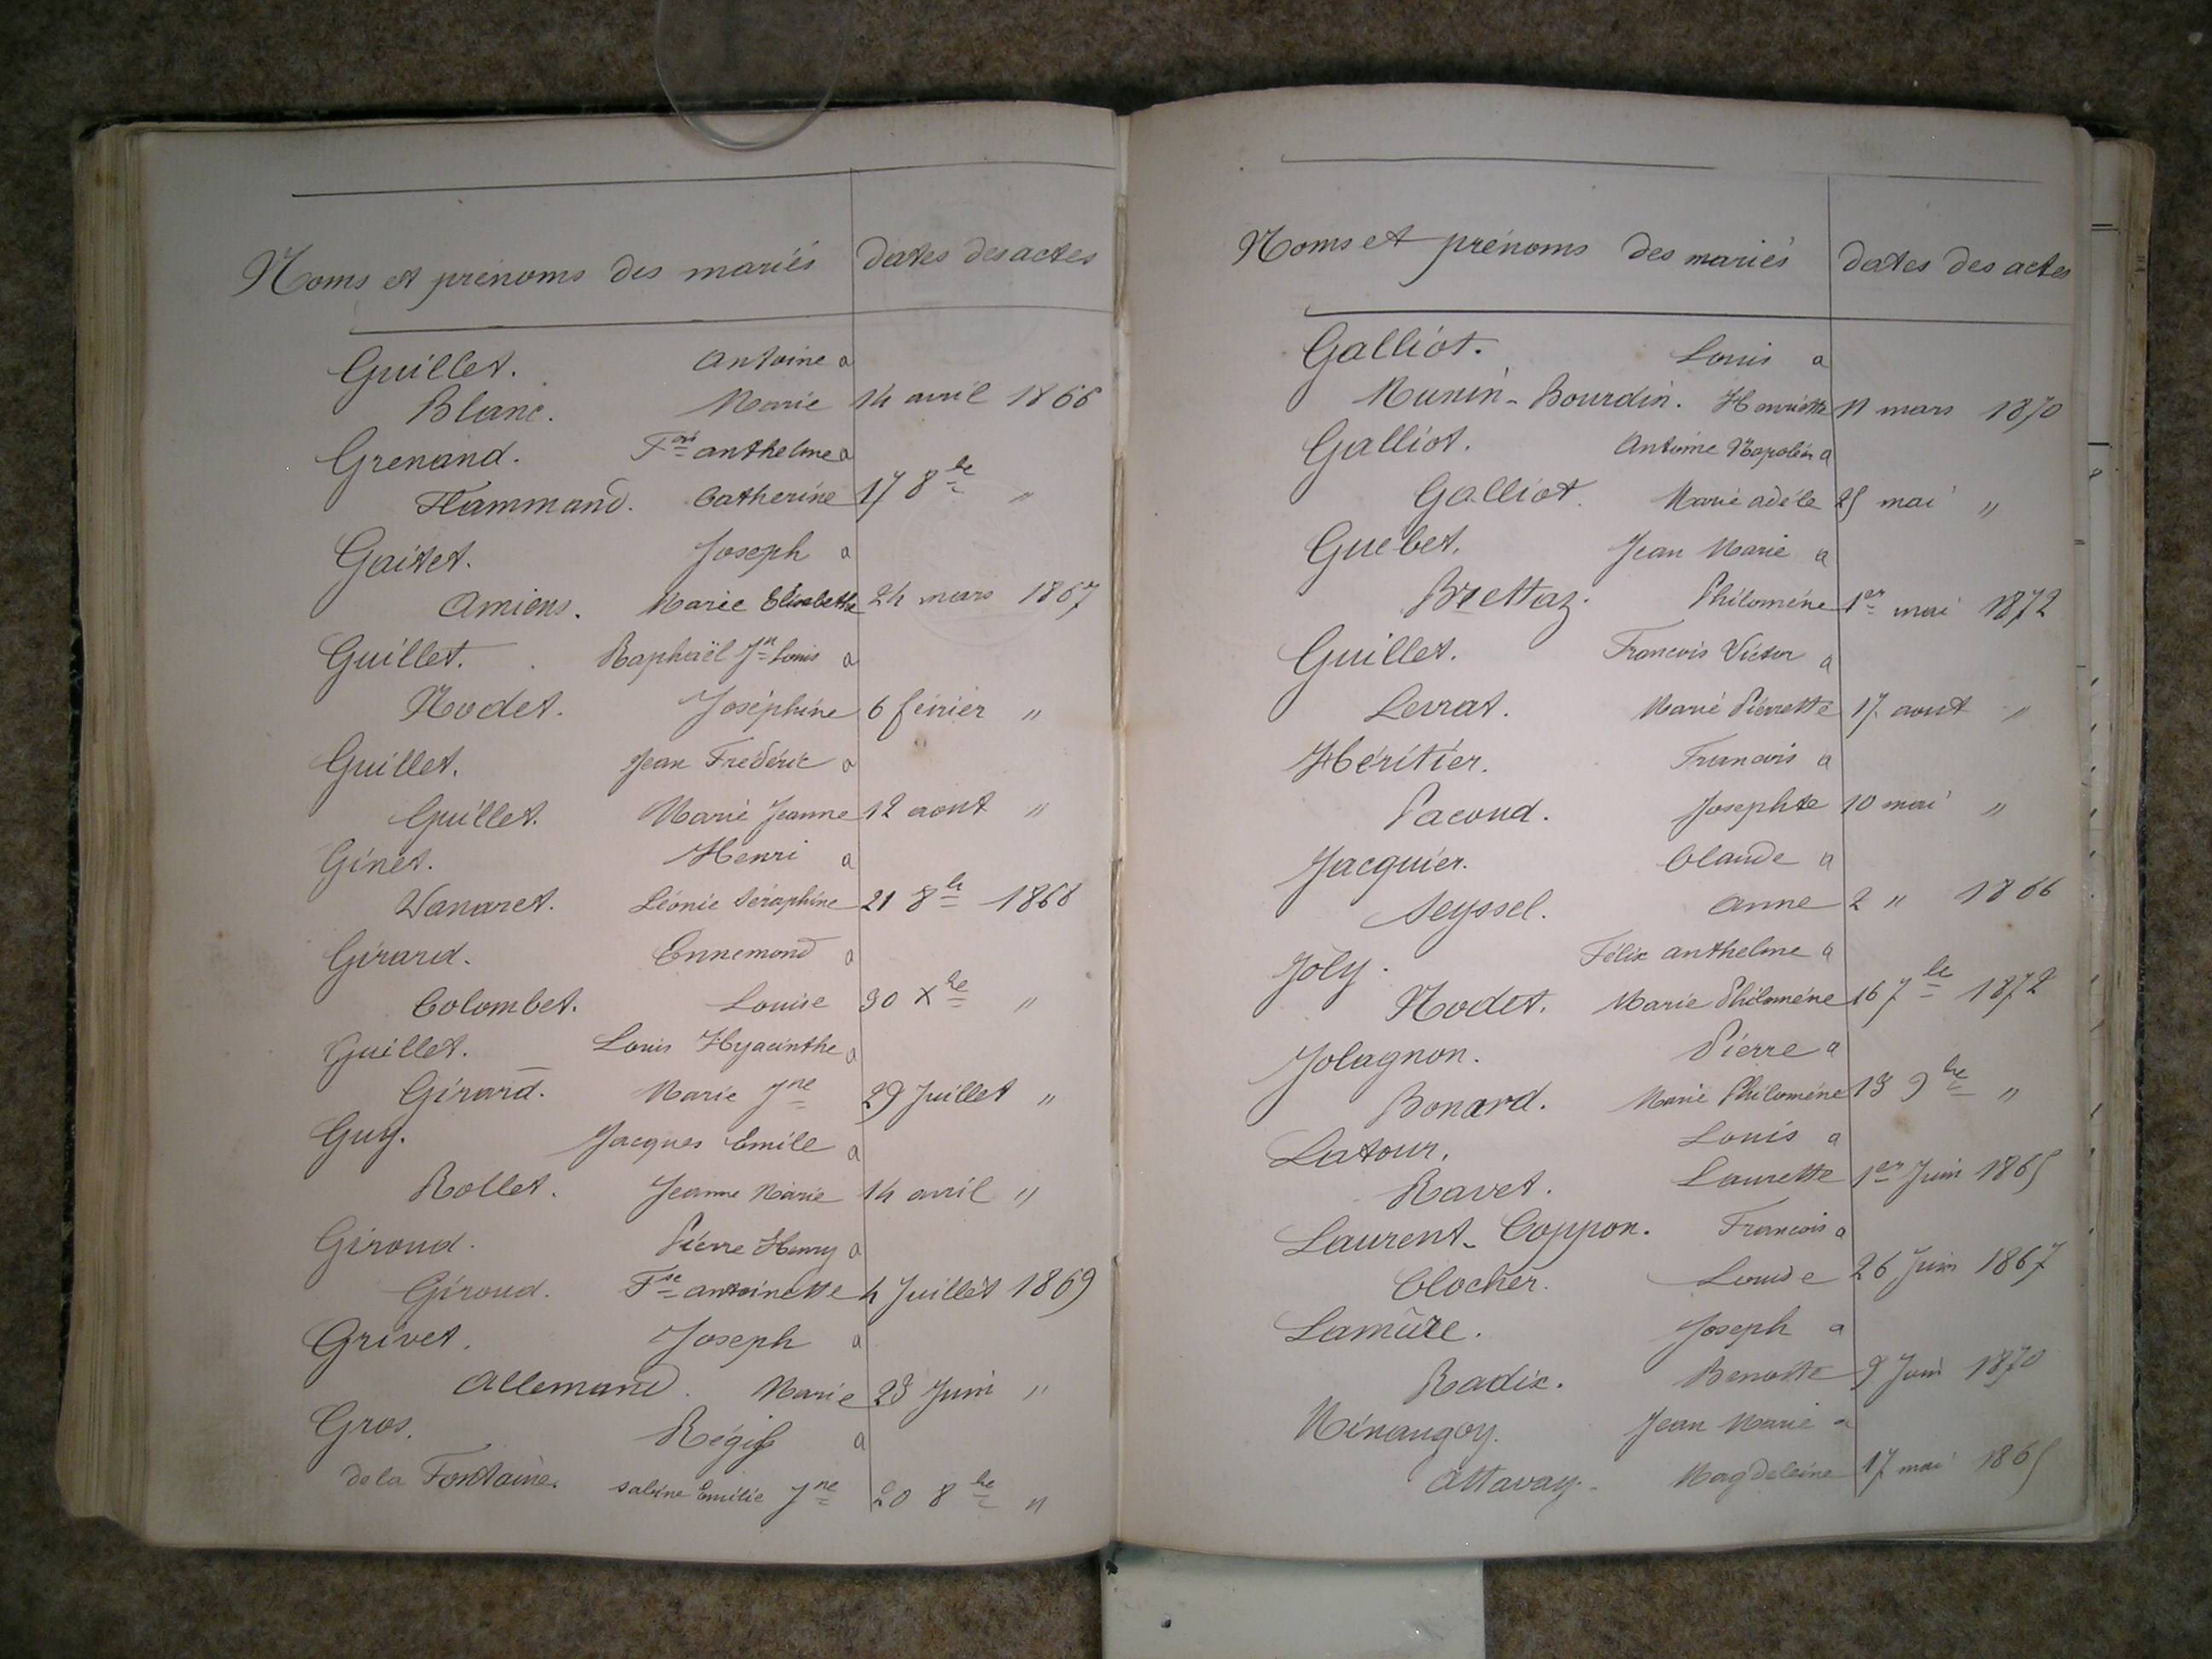 Noms et prénoms des mariés dates des actes
Guillet. Antoine a
Blanc. Marie 14 avril 1866
Grenand. Fois anthelme a
Flammand. Catherine 17 8bre "
Gaitet. Joseph a
Amiens. Marie Elisabeth 24 mars 1867
Guillet. Raphaël Jn Louis a
Nodet. Joséphine 6 février "
Guillet. Jean Frédéric a
Guillet. Marie Jeanne 12 aout "
Ginet. Henri a
Vanaret. Léonie Séraphine 21 8bre 1868
Girard. Ennemond a
Colombet. Louise 30 Xbre "
Guillet. Louis Hyacinthe a
Girard. Marie Jne 29 Juillet "
Guy. Jacques Emile a
Rollet. Jeanne Marie 14 avril "
Giroud. Pierre Henry a
Giroud. Fse antoinette 4 Juillet 1869
Grivet. Joseph a
Allemand. Marie 23 Juin "
Gros. Régis a
de la Fontaine. Sabine Emilie Jne 20 8bre "
Noms et prénoms des mariés dates des actes
Galliot. Louis a
Munin-Bourdin. Henriette 11 mars 1870
Galliot. Antoine Napoléon a
Galliot. Marie adèle 25 mai "
Guebet. Jean Marie a
Brettaz. Philomène 1er mai 1872
Guillet. Francois Victor a
Levrat. Marie Pierrette 17 aout "
Héritier. Francois a
Pacoud. Josephte 10 mai "
Jacquier. Claude a
Seyssel. anne 2 " 1866
Joly. Félix anthelme a
Nodet. Marie Philomène 16 7bre 1872
Jolagnon. Pierre a
Bonard. Marie Philomène 13 9bre "
Latour. Louis a
Ravet. Laurette 1er Juin 1865
Laurent-Coppon. Francois a
Clocher. Louise 26 Juin 1867
Lamûre. Joseph a
Radix. Benoîte 9 Juin 1870
Minangoy. Jean Marie a
Attavay. Magdeleine 17 mai 1865